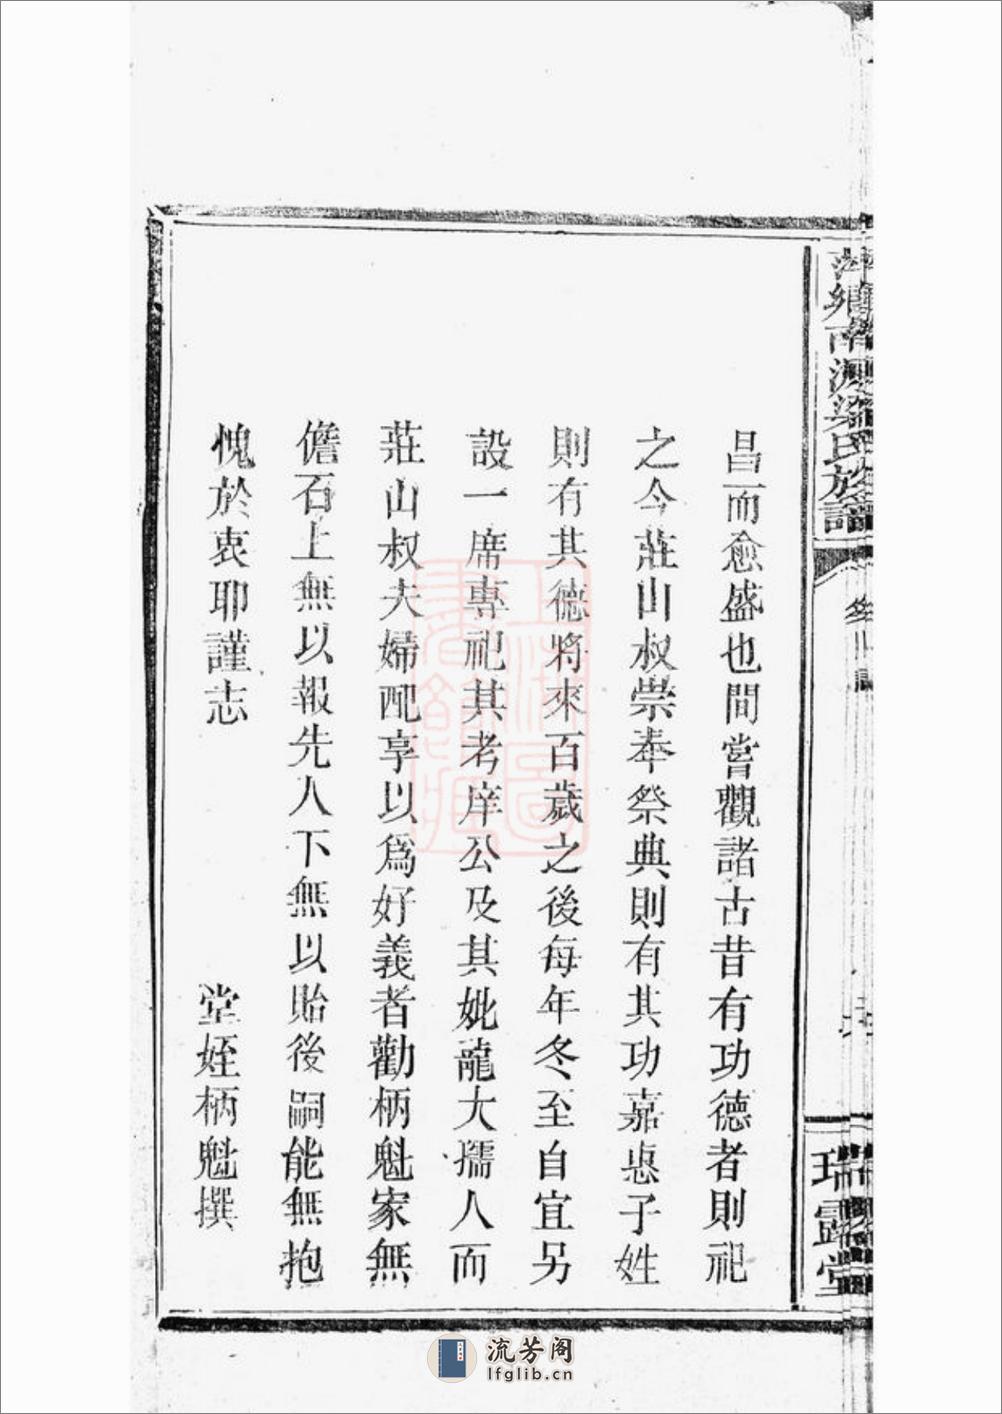 昌而愈盛也間嘗觀諸古昔有功德者則祀
之今莊山叔崇奉祭典則有其功嘉惠子姓
則有其德將來百歲之後每年冬至自宜另
設一席專祀其考庠公及其妣龍大孺人而
莊山叔夫婦配享以爲好義者勸柄魁家無
儋石上無以報先人下無以貽後嗣能無抱
愧於衷耶謹志
堂姪柄魁撰
鄉南
氏族譜
瑞露堂
上海圖書館藏
流芳阁
lfglib.cn